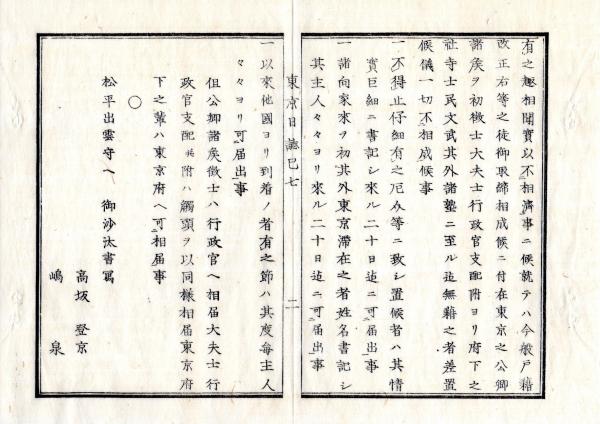 有之趣相聞實以不相濟事ニ候就テハ今般戸籍
改正右等之徒御取締相成候ニ付在東京之公卿
諸侯ヲ初徴士大夫士行政官支配附ヨリ府下之
社寺士民文武其外諸塾ニ至ル迄無籍之者差置
候儀一切不相成候事
一不得止仔細有之厄介等ニ致シ置候者ハ其情
實巨細ニ書記シ來ル二十日迄ニ可届出事
一諸向家來ヲ初其外東京滞在之者姓名書記シ
其主人々々ヨリ來ル二十日迄ニ可届出事
東京日誌巳七
二
一以來他國ヨリ到着ノ者有之節ハ其度毎主人
々々ヨリ可届出事
但公卿諸侯徴士ハ行政官ヘ相届大夫士行
政官支配并附ハ觸頭ヲ以同様相届東京府
下之輩ハ東京府ヘ可相届事
○
松平出雲守ヘ 御沙汰書寫
高坂 登京
嶋 泉